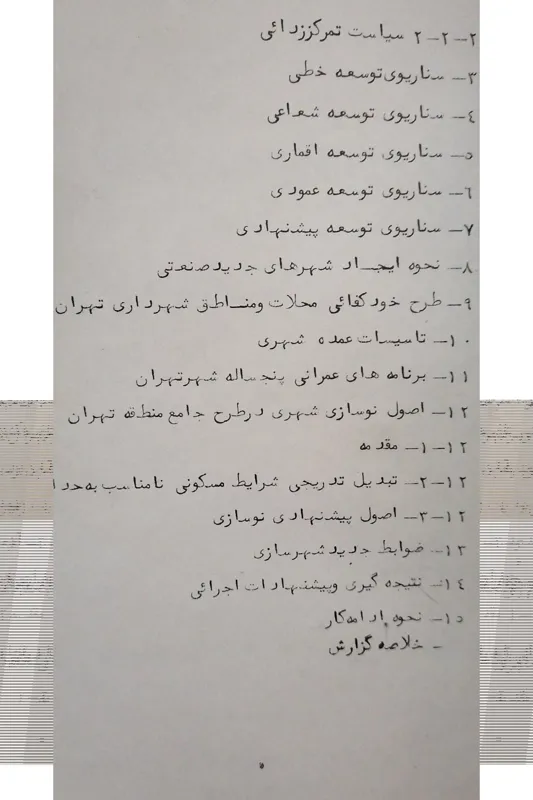 ۲-۲-۲ سیاست تمرکززدائی
۳- سناریوی توسعه خطی
٤- سناریوی توسعه شعاعی
٥- سناریوی توسعه اقماری
٦- سناریوی توسعه عمودی
۷- سناریوی توسعه پیشنهادی
۸- نحوه ایجاد شهرهای جدید صنعتی
۹- طرح خودکفائی محلات ومناطق شهرداری تهران
۱۰- تاسیسات عمده شهری
۱۱- برنامه های عمرانی پنجساله شهرتهران
۱۲- اصول نوسازی شهری درطرح جامع منطقه تهران
۱۲-۱- مقدمه
۱۲-۲- تبدیل تدریجی شرایط مسکونی نامناسب به
۱۲-۳- اصول پیشنهادی نوسازی
۱۳- ضوابط جدید شهرسازی
۱٤- نتیجه گیری وپیشنهادات اجرائی
۱٥- نحوه ادامه کار
- خلاصه گزارش